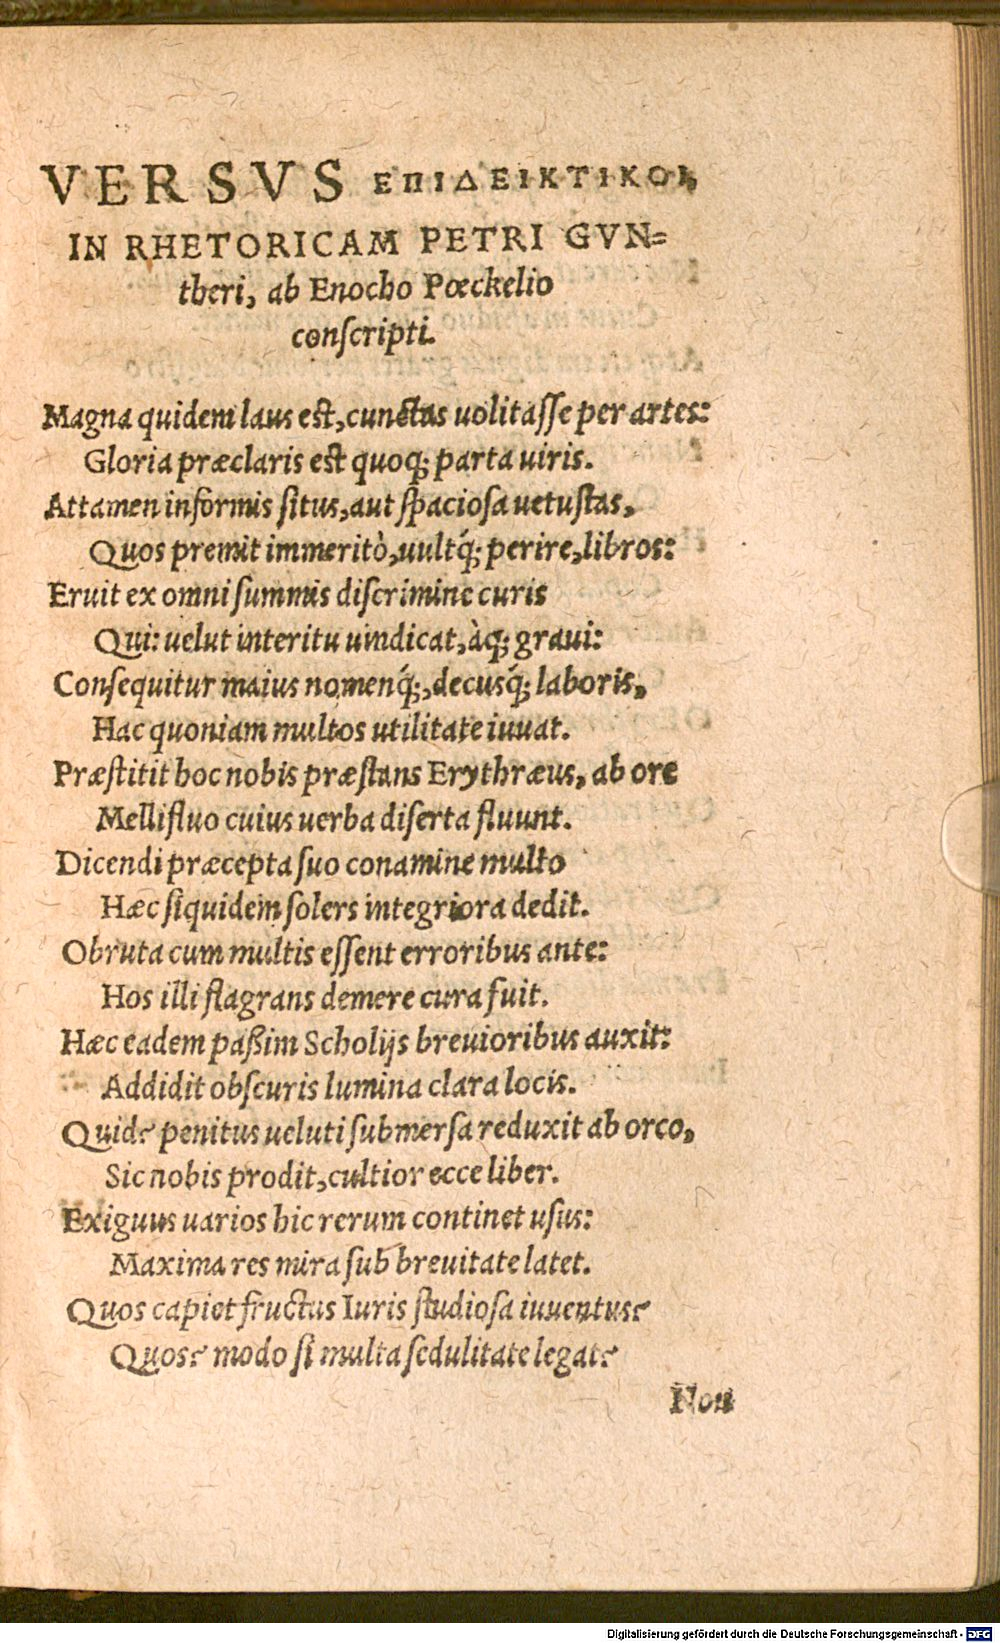 VERSVS ΕΠΙΔΕΙΚΤΙΚΟΙ,
IN RHETORICAM PETRI GVN=
theri, ab Enocho Pœckelio
conſcripti.
Magna quidem laus eſt, cunctas uolitaſſe per artes:
Gloria præclaris eſt quoq; parta uiris.
Attamen informis ſitus, aut ſpacioſa uetuſtas,
Quos premit immeritò, uultq́; perire, libros:
Eruit ex omni ſummis diſcrimine curis
Qui: uelut interitu uindicat, àq; graui:
Conſequitur maius nomenq́;, decusq́; laboris,
Hac quoniam multos utilitate iuuat.
Præſtitit hoc nobis præſtans Erythræus, ab ore
Mellifluo cuius uerba diſerta fluunt.
Dicendi præcepta ſuo conamine multo
Hæc ſiquidem ſolers integriora dedit.
Obruta cum multis eſſent erroribus ante:
Hos illi flagrans demere cura fuit.
Hæc eadem paßim Scholijs breuioribus auxit:
Addidit obſcuris lumina clara locis.
Quid? penitus ueluti ſubmerſa reduxit ab orco,
Sic nobis prodit, cultior ecce liber.
Exiguus uarios hic rerum continet uſus:
Maxima res mira ſub breuitate latet.
Quos capiet fructus Iuris ſtudioſa iuuentus?
Quos? modo ſi multa ſedulitate legat?
Non
Digitalisierung gefördert durch die Deutsche Forschungsgemeinschaft - DFG